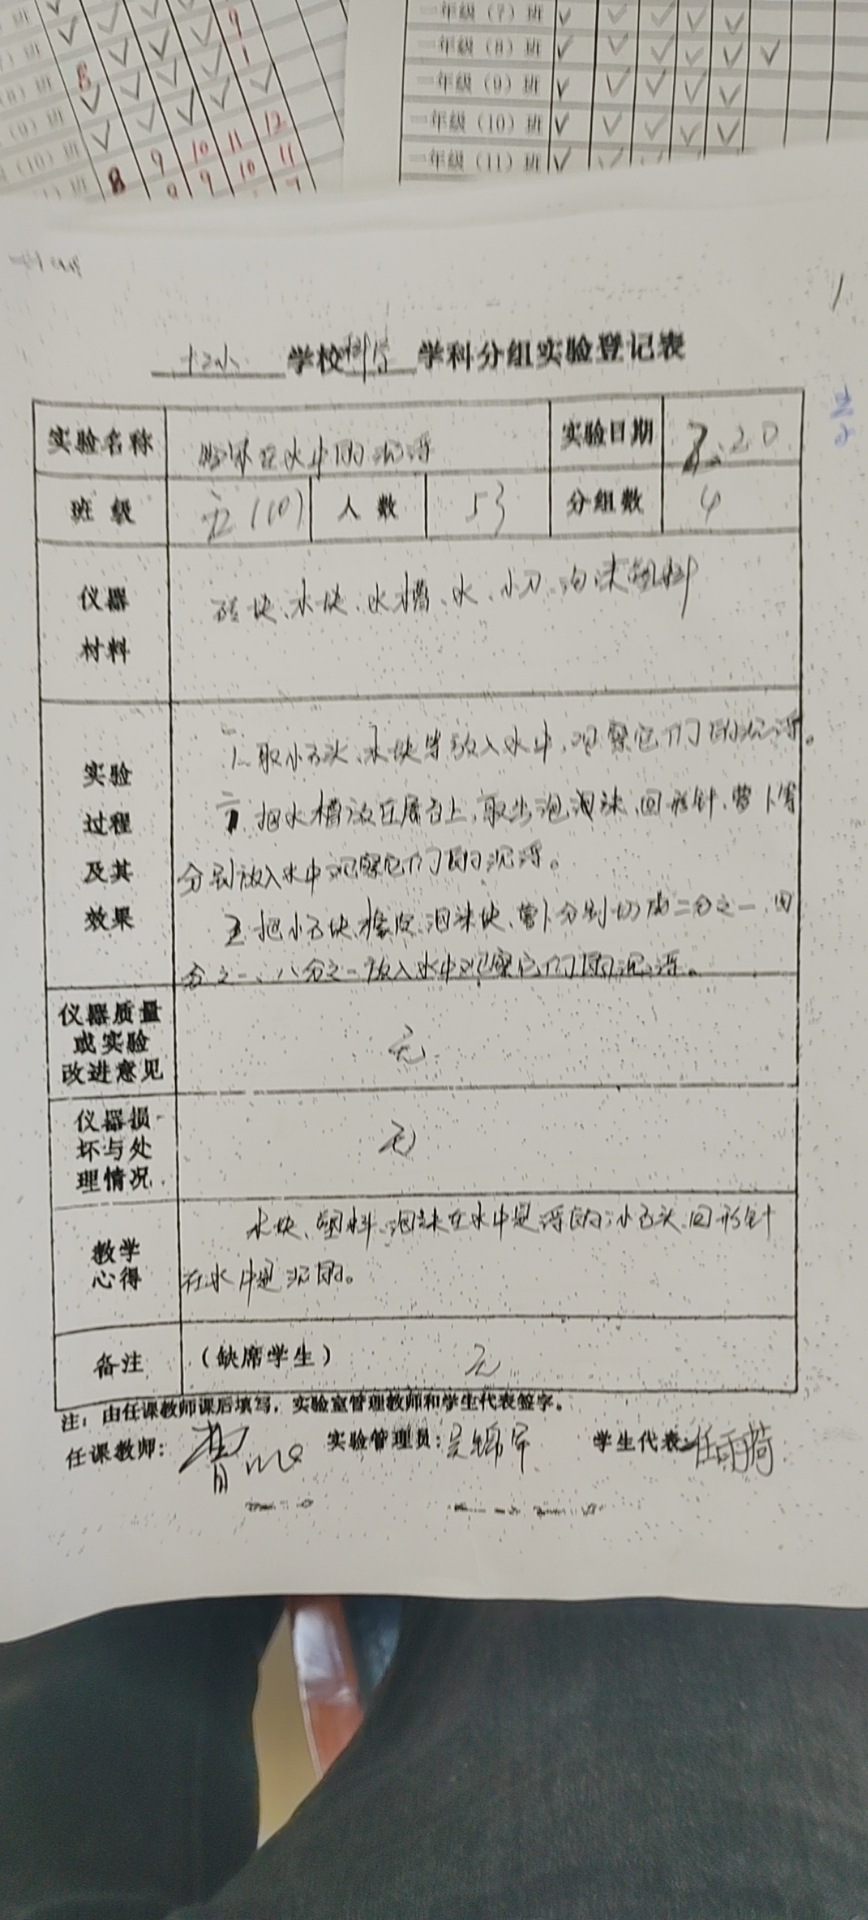 一年级（7）班
一年级（8）班
一年级（9）班
一年级（10）班
一年级（11）班
（9）班
（10）班
8 9 10 11 12
9 9 10 11
十二小 学校 科学 学科分组实验登记表
实验名称 物体在水中的沉浮 实验日期 2.20
班级 五（10） 人数 53 分组数 4
仪器
材料
砖块、木块、水槽、水、小刀、泡沫塑料
实验
过程
及其
效果
1、取小石头、木块等放入水中，观察它们的沉浮。
把水槽放在展台上，取出泡泡沫、回形针、萝卜等
分别放入水中观察它们的沉浮。
把小石块、橡皮、泡沫块、萝卜分别切成二分之一、四
分之一、八分之一放入水中观察它们的沉浮。
仪器质量
或实验
改进意见
无
仪器损
坏与处
理情况
无
教学
心得
木块、塑料、泡沫在水中是浮的；小石头、回形针
在水中是沉的。
备注 （缺席学生） 无
注：由任课教师课后填写，实验室管理教师和学生代表签字。
任课教师： 实验管理员： 学生代表：任雨荷